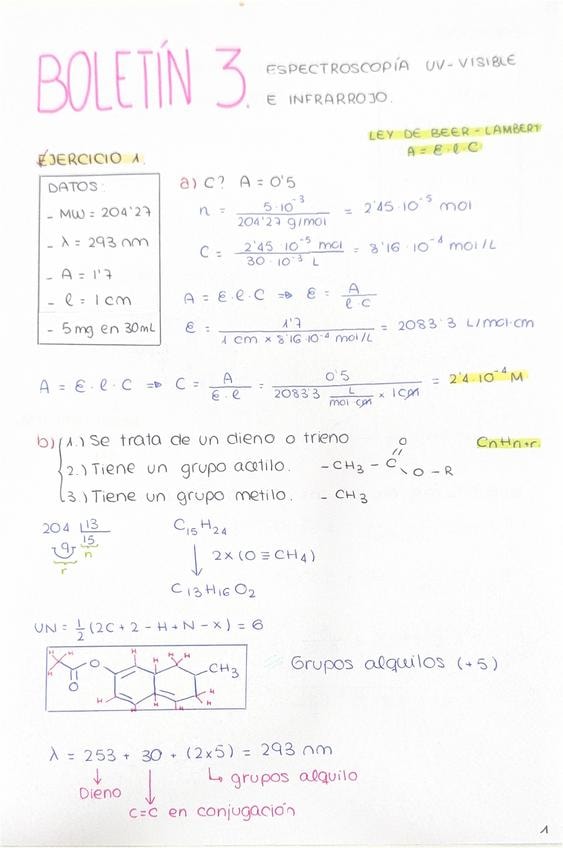 BOLETÍN 3.
ESPECTROSCOPÍA UV-VISIBLE
E INFRARROJO.
LEY DE BEER-LAMBERT
A = ε·l·C
EJERCICIO 1.
DATOS:
- MW = 204'27
- λ = 293 nm
- A = 1'7
- l = 1 cm
- 5mg en 30mL
a) C? A = 0'5
n = 5·10⁻³ / 204'27 g/mol = 2'45·10⁻⁵ mol
C = 2'45·10⁻⁵ mol / 30·10⁻³ L = 8'16·10⁻⁴ mol/L
A = ε·l·C ⇒ ε = A / l·C
ε = 1'7 / 1 cm × 8'16·10⁻⁴ mol/L = 2083'3 L/mol·cm
A = ε·l·C ⇒ C = A / ε·l = 0'5 / 2083'3 L/mol·cm × 1cm = 2'4·10⁻⁴ M
b) 1.) Se trata de un dieno o trieno
CnHn+r.
2.) Tiene un grupo acetilo. - CH3 - C
O
O - R
3.) Tiene un grupo metilo. - CH3
204 13
9 15
r n
C15H24
2×(O ≡ CH4)
C13H16O2
UN = 1/2 (2C + 2 - H + N - X) = 6
H H H H H H H H H H
O
O
CH3
Grupos alquilos (+5)
λ = 253 + 30 + (2×5) = 293 nm
grupos alquilo
Dieno
C=C en conjugación
1